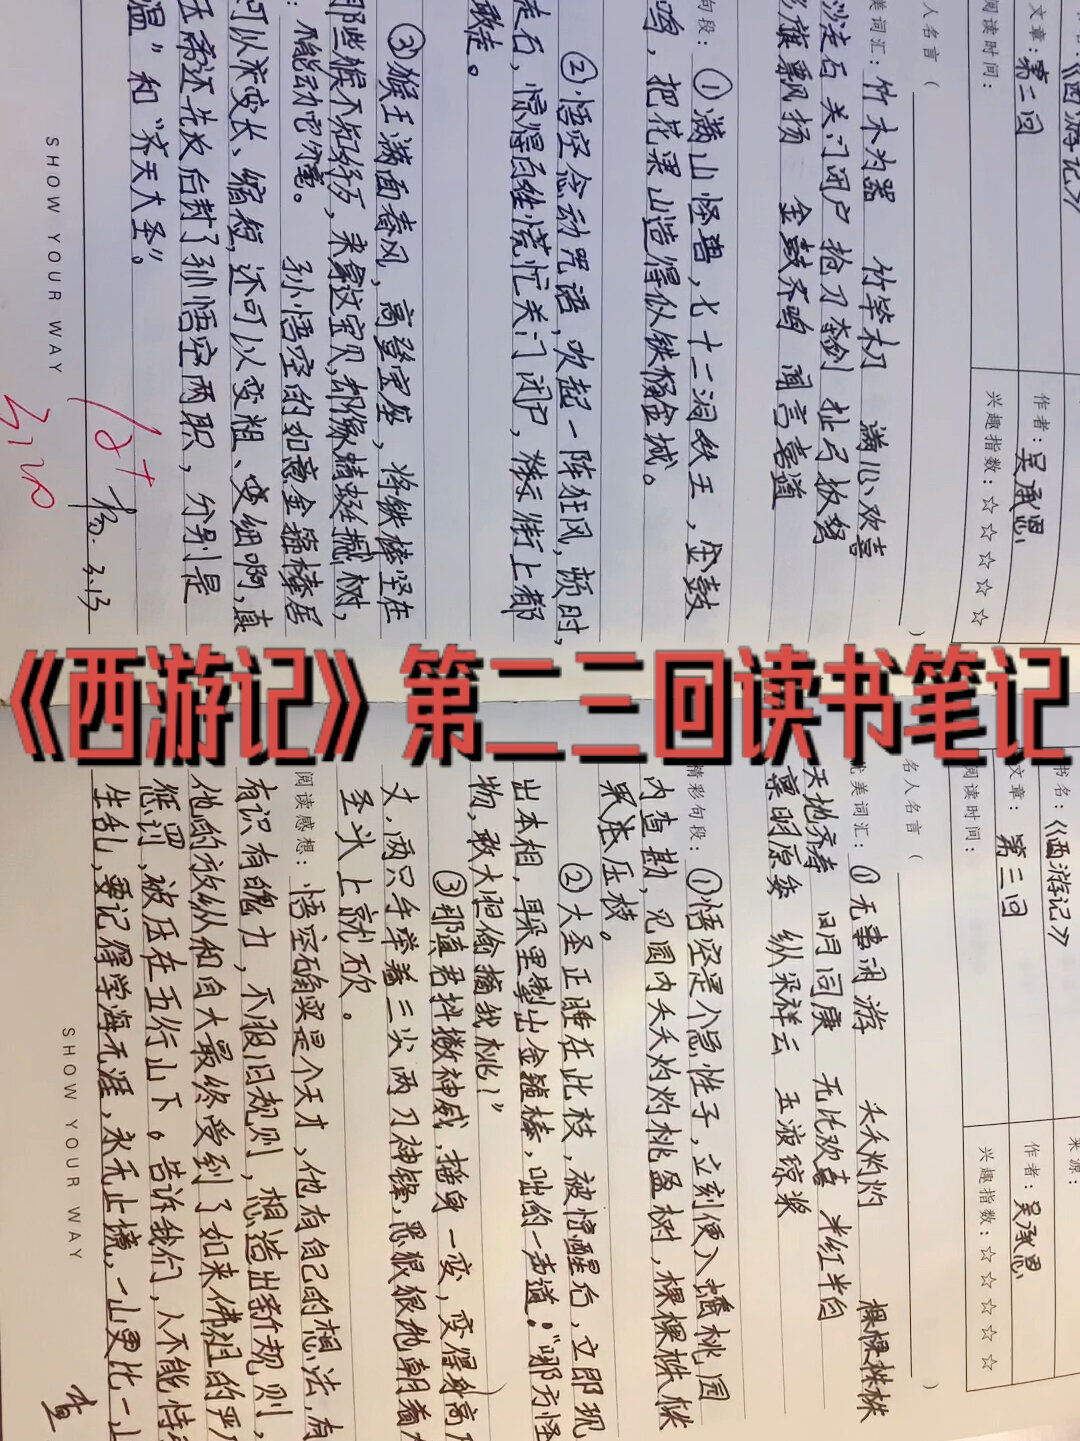 《西游记》第二三回读书笔记
《西游记》
文章：第二回
作者：吴承恩
阅读时间：
兴趣指数：☆☆☆☆☆
人名言（ ）
美词汇：竹木为器 竹竿初 满心欢喜
沙走石 关门闭户 抢刀夺剑 扯弓扳弩
旗飘扬 金鼓齐鸣 闻言喜道
句段：①满山怪兽，七十二洞妖王，金鼓
鸣，把花果山造得似铁桶金城。
②悟空念动咒语，吹起一阵狂风，顿时，
走石，惊得百姓慌忙关门闭户，街上都
敢走。
③猴王满面春风，高登宝座，将铁棒竖在
那些猴不知好歹，来拿这宝贝，却像蜻蜓撼树，
：不能动它分毫。 孙悟空的如意金箍棒居
可以变长、缩短，还可以变粗、变细啊，真
玉帝还先后封了孙悟空两职，分别是
温”和“齐天大圣”。
SHOW YOUR WAY
杨 3.13
书名：《西游记》
来源：
文章：第三回
作者：吴承恩
阅读时间：
兴趣指数：☆☆☆☆☆
名人名言（ ）
优美词汇：①无事闲游 夭夭灼灼 棵棵株株
天地齐寿 同庚 无比欢喜 半红半白
禀明原委 纵朵祥云 玉液琼浆
精彩句段：①悟空是个急性子，立刻便入蟠桃园
内查勘，见园内夭夭灼灼桃盈树，棵棵株株
果压枝。
②大圣正睡在此枝，被惊醒后，立即现
出本相，耳朵里掣出金箍棒，咄的一声道：“哪方怪
物，敢大胆偷摘我桃！”
③那真君抖擞神威，摇身一变，变得身高
丈，两只手举着三尖两刃神锋，恶狠狠地朝着
圣头上就砍。
阅读感想：悟空确实是个天才，他有自己的想法，有
有识有魄力，不服旧规则，想造出新规则，
他的放纵和自大最终受到了如来佛祖的严
惩罚，被压在五行山下。告诉我们，人不能恃
生乱，要记得学海无涯，永无止境，一山更比一山
SHOW YOUR WAY
查